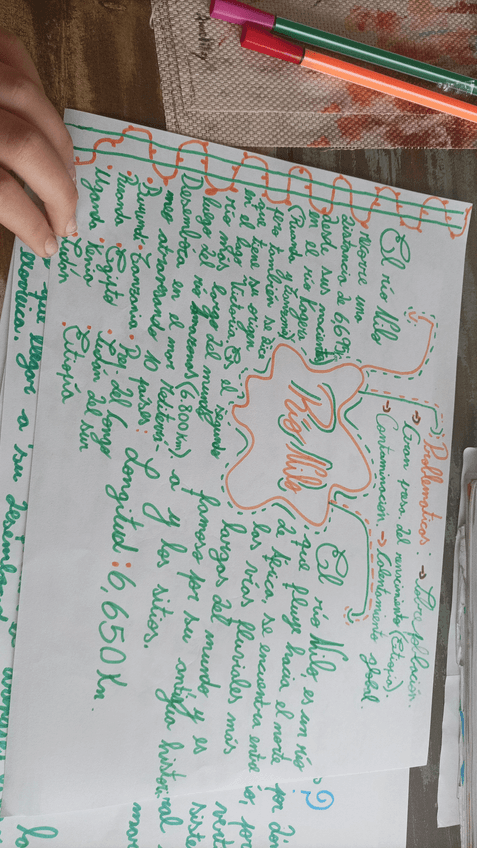 Problematicas:
→ Sobre población.
→ Gran presa del renacimiento (Etiopía).
→ Contaminación → Calentamiento global.
Río Nilo
El río Nilo
recorre una
distancia de 6695
desde sus nacientes
en el río Kagera
(Ruanda y Tanzania)
pero también se dice
que tiene su origen
en el lago Victoria. Es el segundo
río más largo del mundo
luego del río Amazonas (6.800 Km)
Desemboca en el mar Mediterrá-
neo atravesando 10 países:
• Burundi • Tanzania • Rep. del Congo
• Ruanda • Egypto • Sudán del sur
• Uganda • Kenia • Etiopía
• Sudán
El río Nilo, es un río
que fluye hacia el norte
a África, se encuentra entre
los ríos fluviales más
largos del mundo y es
famoso por su antigua historia
y los sitios.
Longitud: 6,650 Km.
por
que llega a su desemb